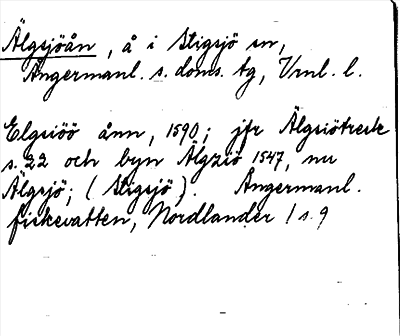 Älgsjöån, å i Stigsjö sn,
Ångermanl. s. doms. tg, Vrnl. l.
Elgsiöö ånn, 1590; jfr Älgsiöträsk
s. 22 och byn Älgziö 1547, nu
Älgsjö; (Stigsjö). Ångermanl.
fiskevatten, Nordlander 1 s. 9